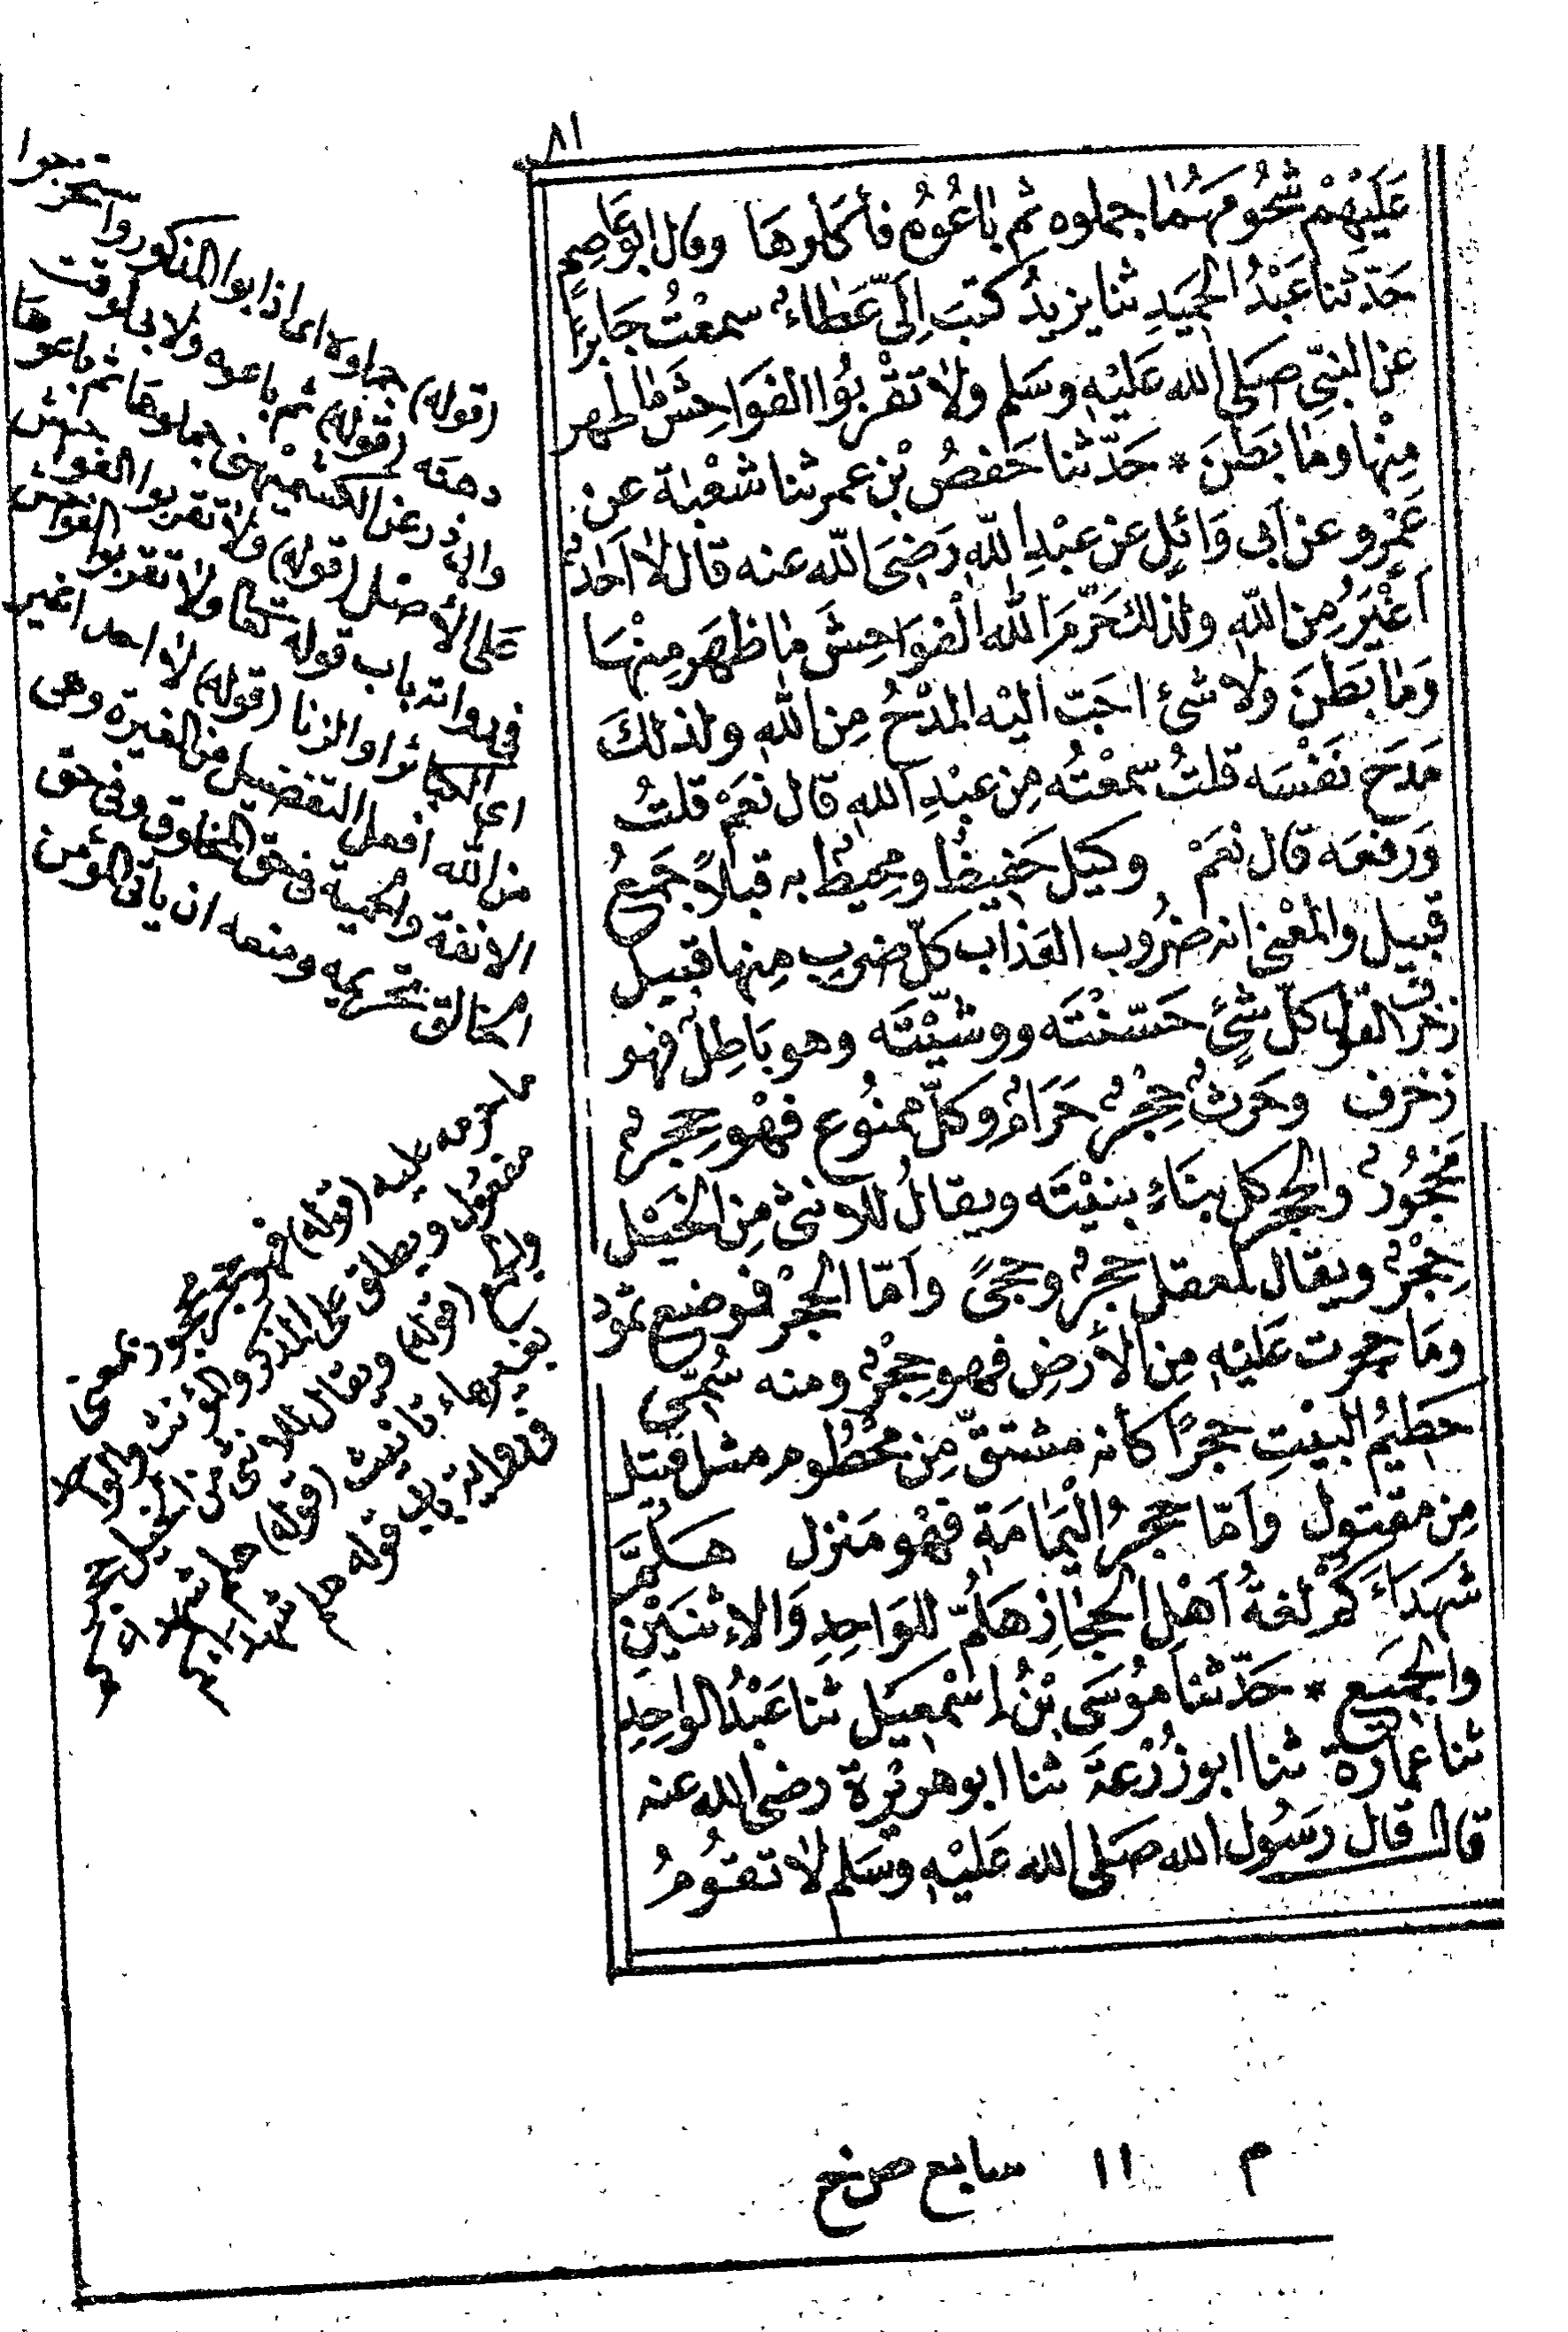 ٨١
عَلَيْهِمْ شُحُومَهُما جملوه ثم باعُوُه فأكلوها وقال ابوعَاصِمٍ
حَدّثنا عَبْدُ الحَمِيَدِ ثنا يزيدُ كتبَ اِلَىّ عَطاءٌ سمعْتُ جَابرًا
عن النبِّي صَلى الله عَليْهِ وسَلم ولا تقْربُوا الفوَاحِشَ ما ظهر
مِنْها وما بَطَنَ * حَدّثنا حَفصُ بْن عمر ثنا شعْبَة عن
عَمْرو عن اَبى وَائِلٍ عن عبْدِ اللهِ رَضِىَ الله عنه قال لا اَحَدٌ
اَغْيَرُ مِن اللهِ ولذلك حَرَّمَ الله الفوَاحِشَ ما ظهَرَ مِنْهَا
وَما بَطَنَ ولا شئ احَبّ اليْهِ المدْحُ مِن اللهِ ولذلكَ
مَدَحَ نَفْسَه قلتُ سمعْتُه مِن عبْدِ اللهِ قال نعَمْ قلتُ
وَرَفعَه قال نعَمْ وكيل حَفيظٌ ومحِيطٌ به قبلاً جَمعُ
قبيل والمعْنى انه ضُروب العَذاب كلّ ضرب مِنها قبيل
زخرف القول كلّ شئٍ حَسّنْتَه ووشّيْتَه وهو بَاطِلٌ فهو
زخرف وحَرثٌ حِجْرٌ حَرَامٌ وكلّ ممنوُع فهْو حِجرٌ
مَحْجُورٌ والحِجر كل بنَاءٍ بنيْتَه ويقالُ للانثى مِن الخَيْل
حِجْرٌ ويقال للعقل حِجرٌ وحِجىً واَمّا الحِجْرُ فموضع ثمودَ
ومَا حجرت عَليْهِ مِن الأرْضِ فهو حِجْرٌ ومنه سُمِّىَ
حَطيْمُ البيْتِ حجرًا كأنه مشتقّ مِن محْطُومٍ مثل قتيل
مِن مقتول واَمّا حجرُ الْيَمامَةِ فهْو مَنْزل هَلُمَّ
شهَدَاءَكمْ لغةُ اَهْلِ الحجَازِ هَلمّ للوَاحِدِ وَالاثنَيْنِ
والجَميع * حَدّثنا مُوسَى بْنُ اِسْمعِيَل ثنا عَبْدُ الواحِدِ
ثنا عمَارَة ثنا ابوزُرْعَةَ ثنا ابوهريْرة رضى الله عنه
قال قال رسُول الله صَلى الله عَليْهِ وسَلم لا تقوُمُ
(قوله) جملوه اى اذابوا المذكور واستخرجوا
دهنه (قوله) ثم باعوه ولابى الوقت
وابى ذر عن الكشميْهنى جملوها ثم باعوها
عَلى الأصل (قوله) ولا تقربوا الفواحش
فى رواية باب قوله تعالى ولا تقربوا الفواحش
اى الكبائر او الزنا (قوله) لا احد اغير
من الله افعل التفضيل من الغيرة وهى
الانفة والحمية فى حق المخلوق وفى حق
الخالق تحريمه ومنعه ان ياتى المؤمن
ما حرمه عليه (قوله) فهو حجر محجور بمعنى
مفعول ويطلق على المذكر والمؤنث والواحد
والجمع (قوله) ويقال للانثى من الخيل حجر
بغير هاء تأنيث (قوله) هلم شهداءكم
فى رواية باب قوله هلم شهداءكم
م ١١ سابع ص خ